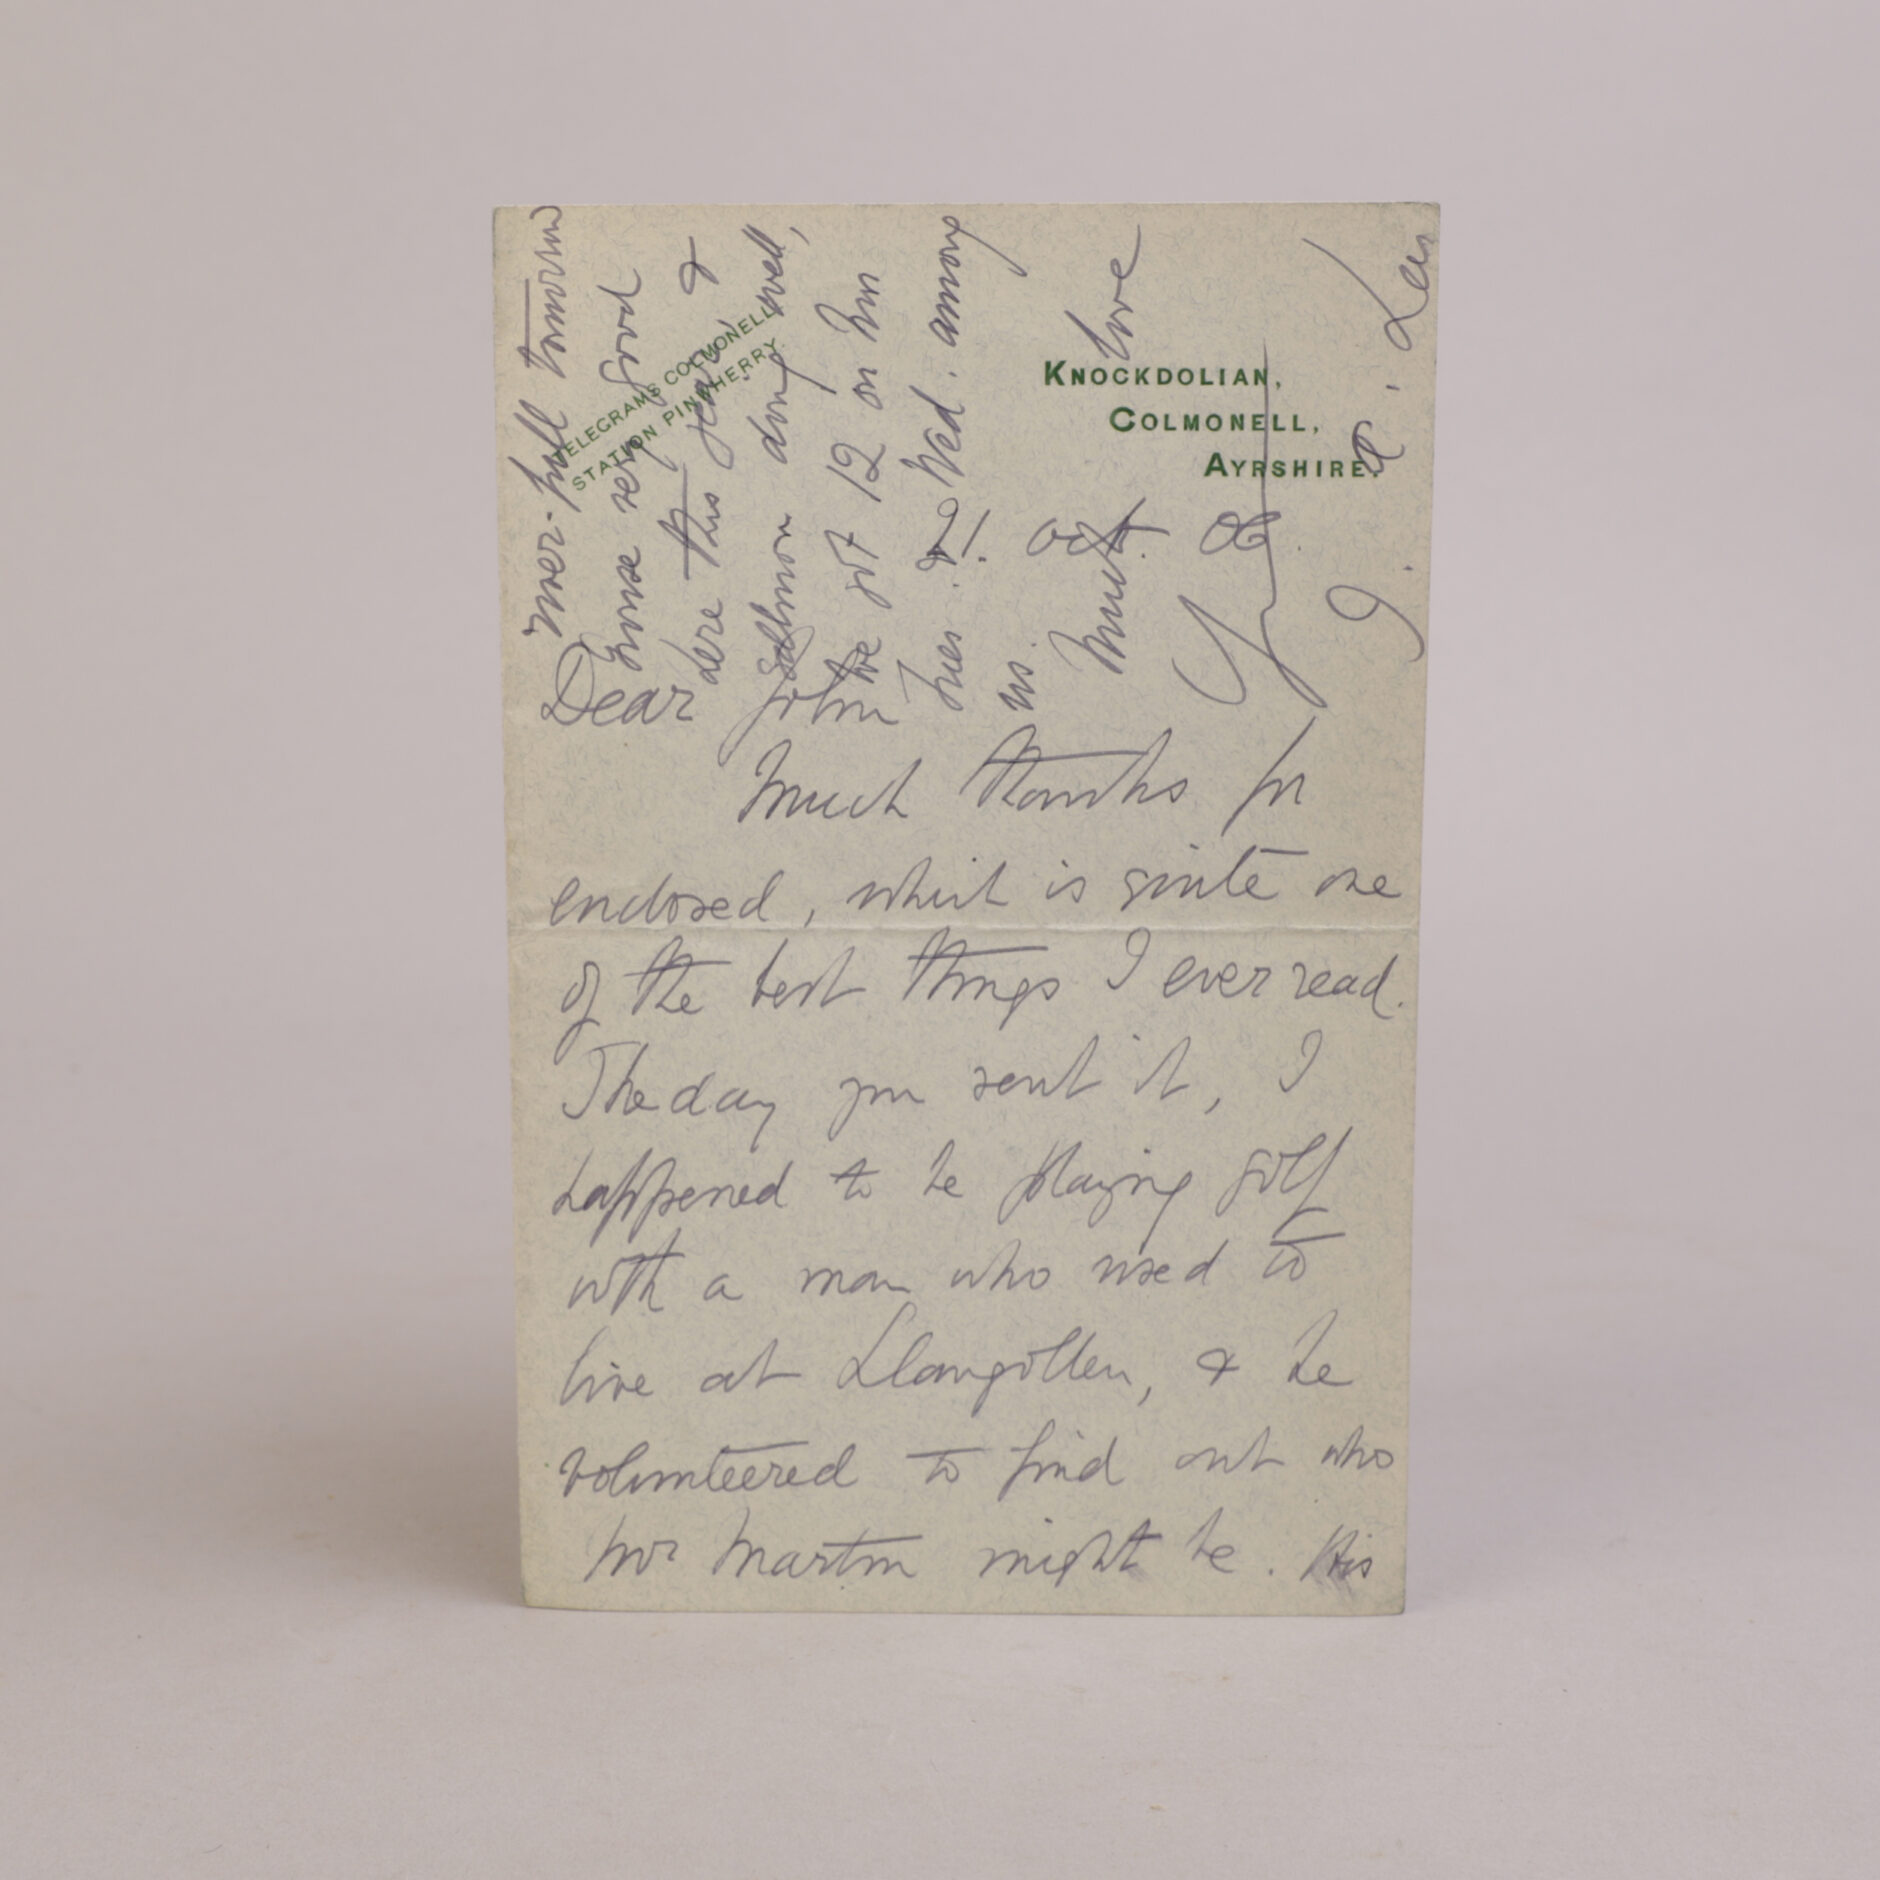 TELEGRAMS COLMONELL
STATION PINWHERRY.
KNOCKDOLIAN,
COLMONELL,
AYRSHIRE.
21. Oct. 06.
Dear John
Much thanks for
enclosed, which is quite one
of the best things I ever read.
The day you sent it, I
happened to be playing golf
with a man who used to
live at Llangollen, & he
volunteered to find out who
Mr Martin might be. His
over-full tomorrow
Grouse very good
here this year, &
Salmon doing well,
We got 12 on hm
& Wed. among
us.
Much love